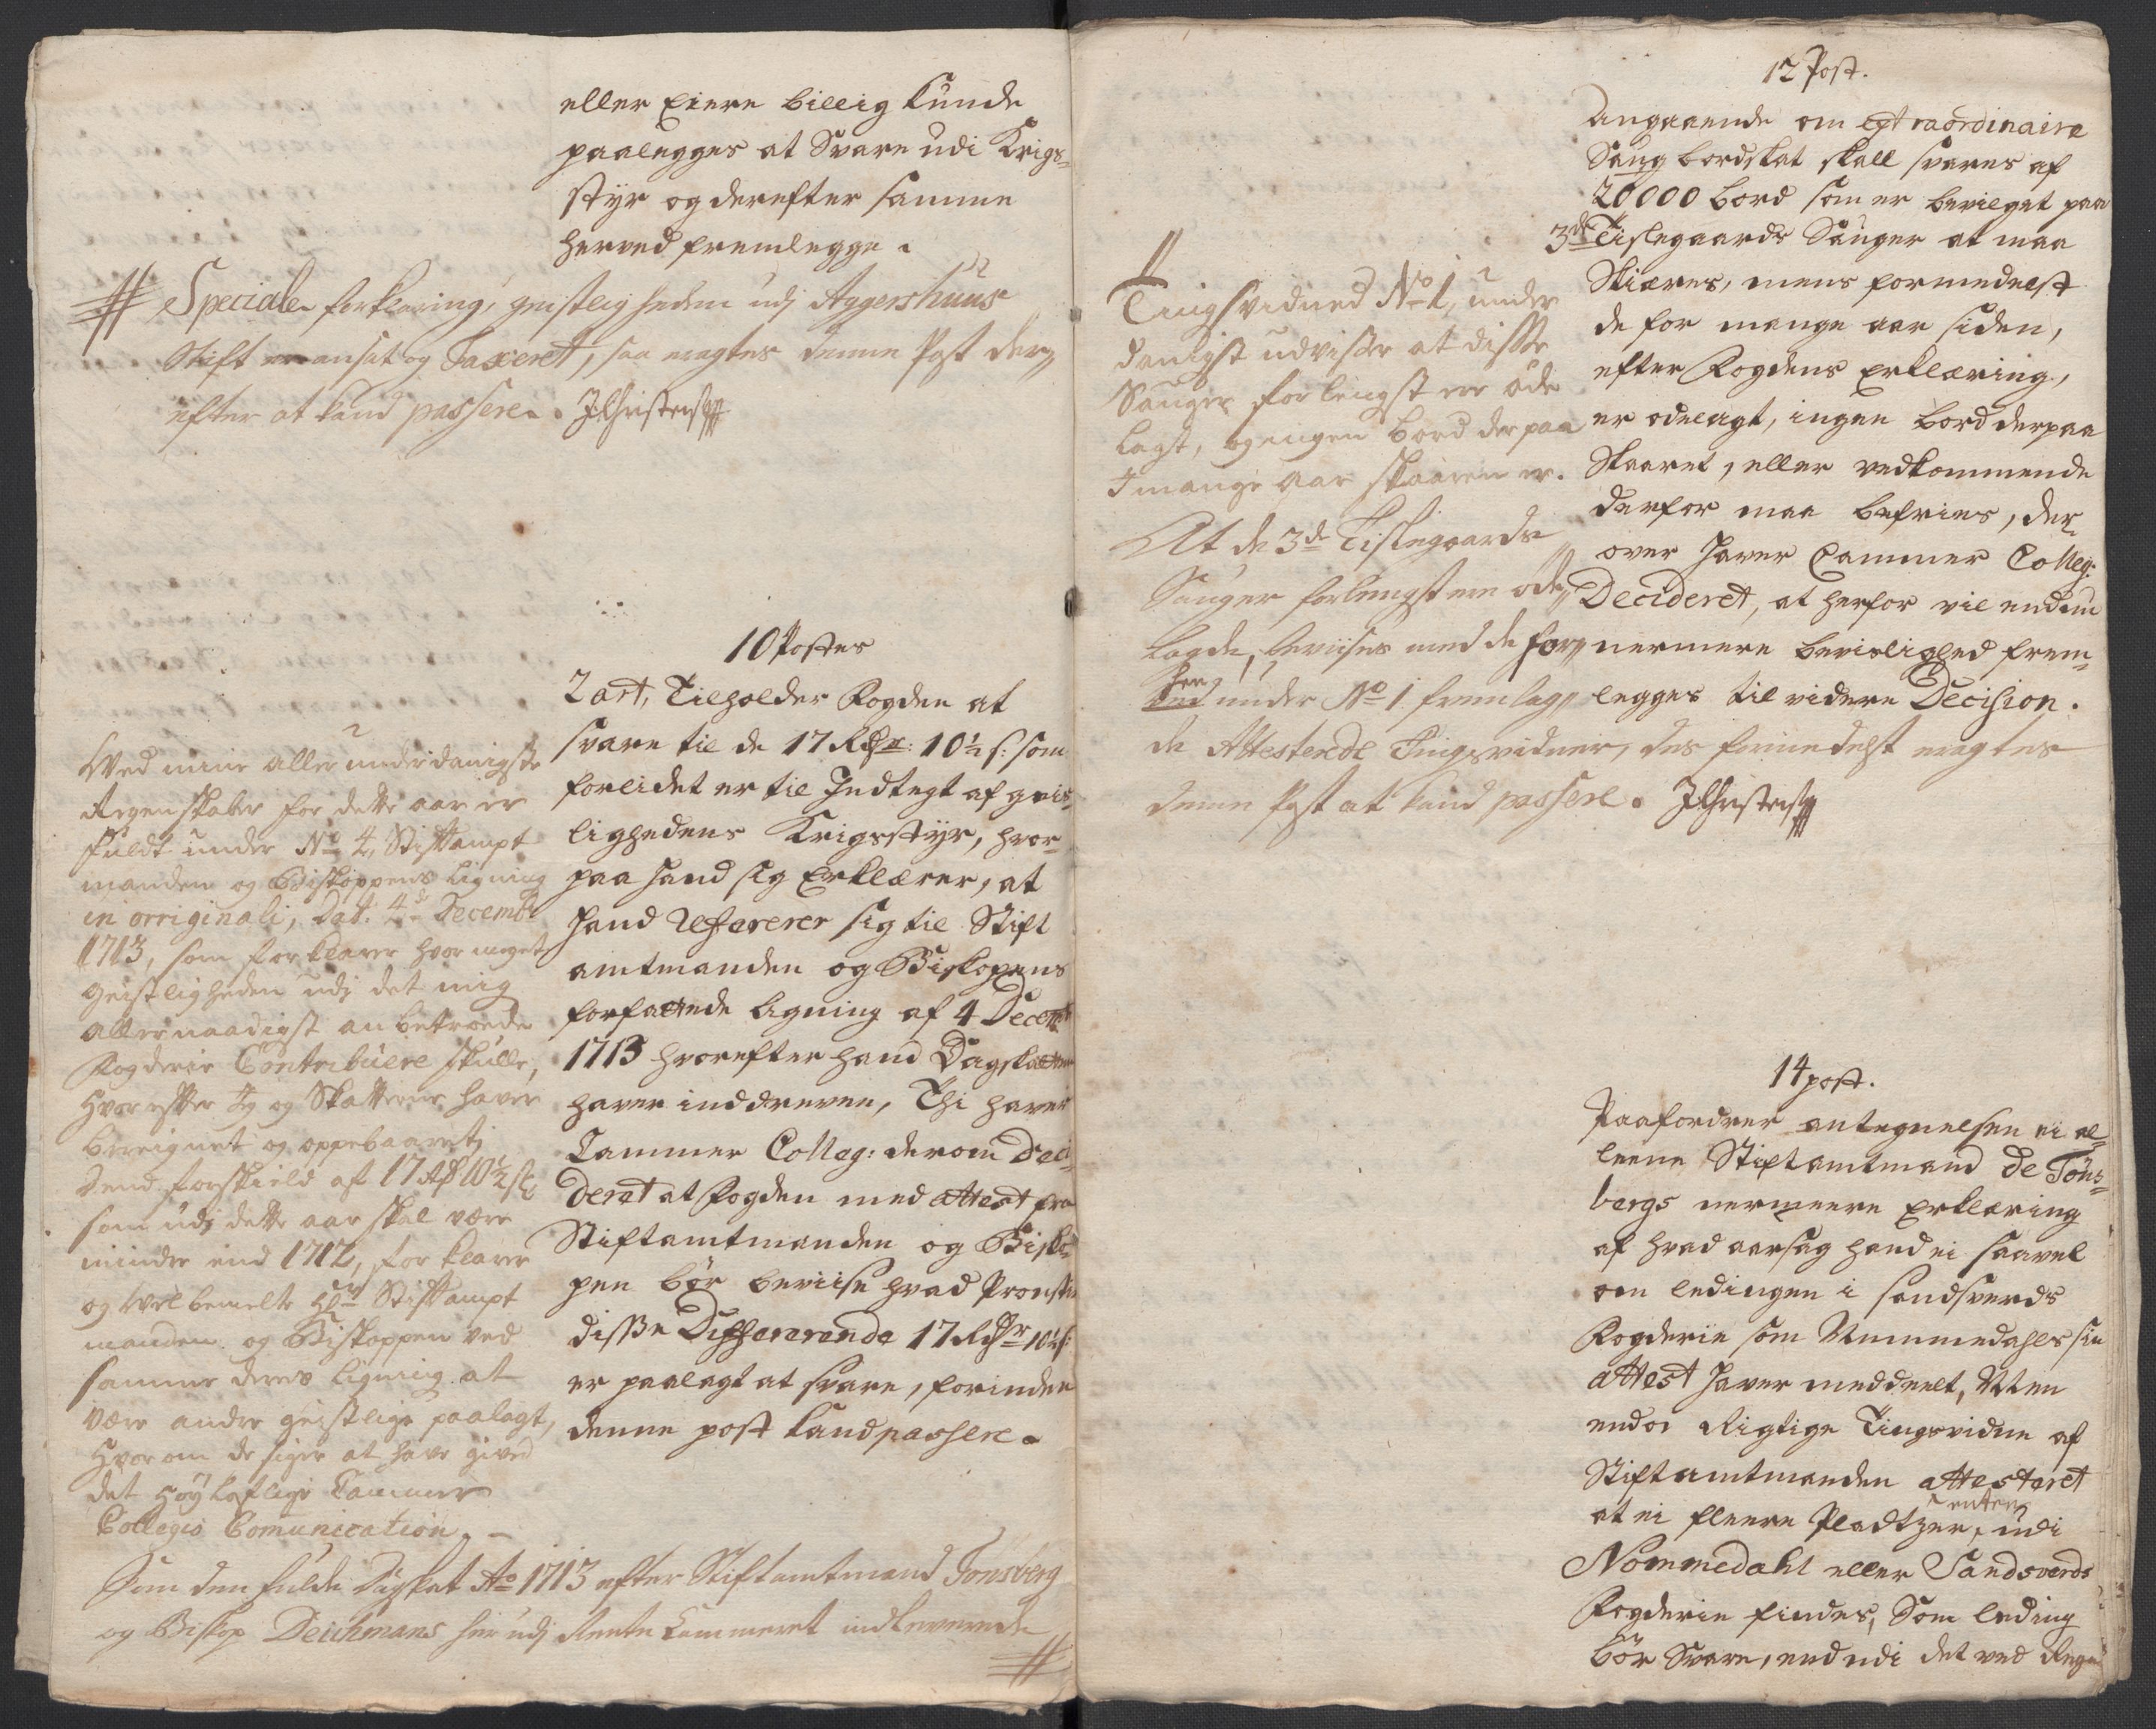 eller Eiere billig kunde
paalegges at Svare udi Krigs-
styr og derefter samme
herved fremlegge.
# Speciale forklaring, geistligheden udj Aggershuus
Stift er ansat og Taxeret, saa eragtes denne Post der-
efter at kand passere. JChristens
10 Postes
2 art, Tilholder Fogden at
svare til de 17 Rdr: 10½ s: som
forlidet er til Indtegt af geist-
lighedens Krigsstyr, hvor-
paa hand sig Erklærer, at
hand refererer sig til Stift
amtmanden og Biskopens
forfattede ligning af 4 Decemb
1713 hvorefter hand Dagskatten
haver inddreven, Thi haver
Cammer Colleg: derom Deci-
deret at Fogden med attest fra
Stiftamtmanden og Bisko-
pen bør beviise hvad Provstie
disse Differerende 17 Rdr 10½ s:
er paalagt at svare, forinden
denne post kand passere.
Ved mine aller underdanigste
Regenskaber for dette aar er
fuldt under No 4, Stiftampt
manden og Biskoppens ligning
in orriginali, Dat: 4de Decembr
1713, som forklarer hvor meget
geistligheden udj det mig
allernaadigst anbetroede
Fogderie Contribuere skulle,
hvorefter Jeg og Skatterne haver
bereignet og oppebaaret,
Dend forskield af 17 Rdr 10½ s
som udj dette aar skal være
mindre end 1712, forklarer
og velbemelte Hr Stiftampt
manden og Biskoppen ved
samme deres ligning at
være andre geistlige paalagt,
hvorom de siger at have gived
det høylofflige Cammer
Collegio Comunication.
Som den fulde Dagskat Ao 1713 efter Stiftamtmand Tonsberg
og Biskop Deichmans her udj Rente Cammeret indleverede
#
12 Post.
Angaaende om extraordinaire
Saug bordskat skall svares af
20000 bord som er bevilget paa
3de Tislegaards Sauger at maa
Skieres, mens formedelst
de for mange aar siden,
efter Fogdens Erklæring,
er ødelagt, ingen bord derpaa
Skaaret, eller vedkommende
derfor maa befries, der-
over haver Cammer Colleg:
Decideret, at herfor vil endnu
nermere bevislighed frem-
legges til videre Decision.
Tingsvidned No 1, under
danigst udviser at disse
Sauger for lengst er øde
lagt, og ingen bord derpaa
I mange aar skaaren er.
At de 3de Tislegaards
Sauger forlengst ere øde-
lagde, beviises med de for-
hen under No 1 fremlag-
de Attesterede Tingsvidner, des formedelst eragtes
denne Post at kand passere. JChristens
14 post.
Paafordrer antegnelsen ei al-
leene Stiftamtmand de Tøns-
bergs nermeere Erklæring
af hvad aarsag hand ei saavel
om ledingen i sandsverds
Fogderie som Nummedahls sin
attest haver meddeelt, Men
endoc Rigtige Tingsvidne af
Stiftamtmanden attesteret
at ei fleere Pladtzer, enten udi
Nommedahl eller Sandsverds
Fogderie findes, Som leding
bør Svare, end udi det ved Regn